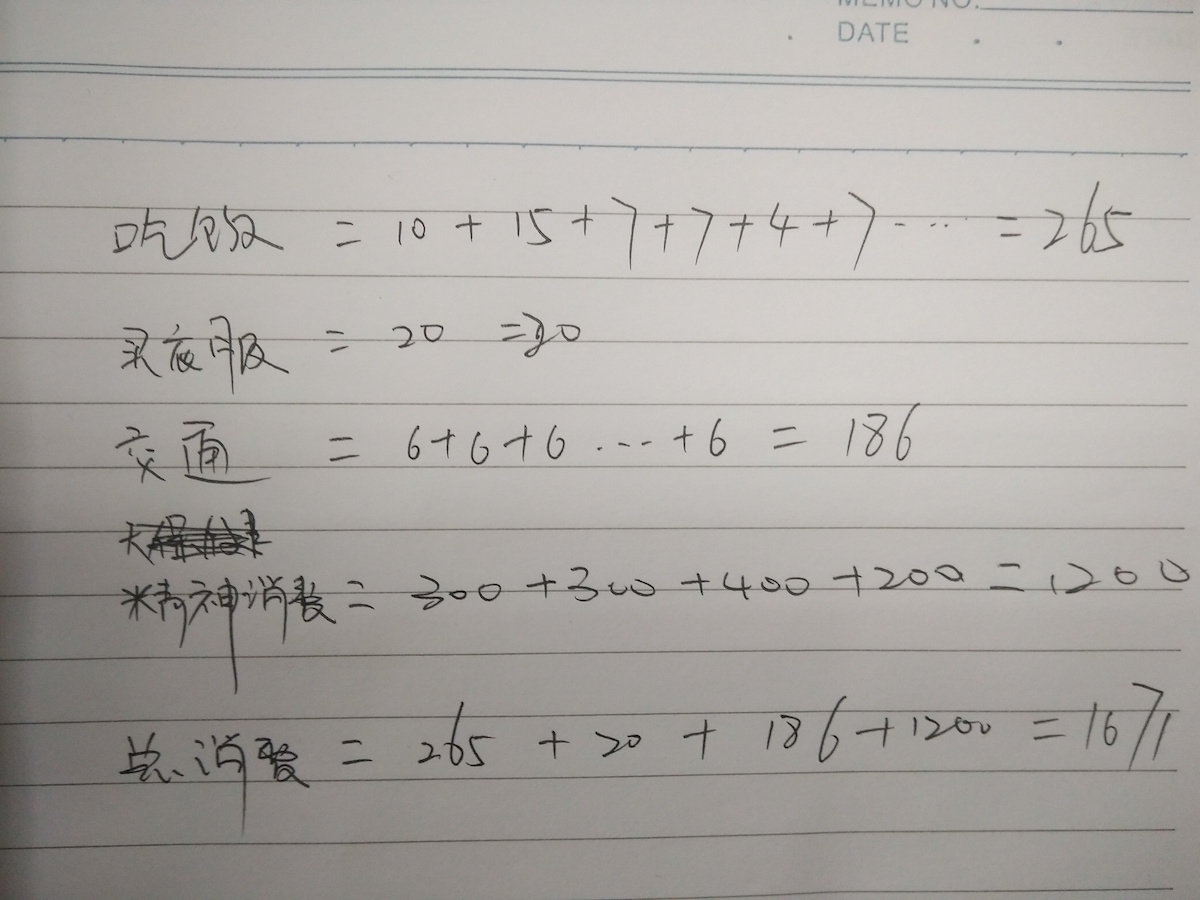 MEMO NO.
DATE
吃饭 = 10 + 15 + 7 + 7 + 4 + 7 ····· = 265
买衣服 = 20 = 20
交通 = 6 + 6 + 6 ···· + 6 = 186
精神消费 = 300 + 300 + 400 + 200 = 1200
总消费 = 265 + 20 + 186 + 1200 = 1671